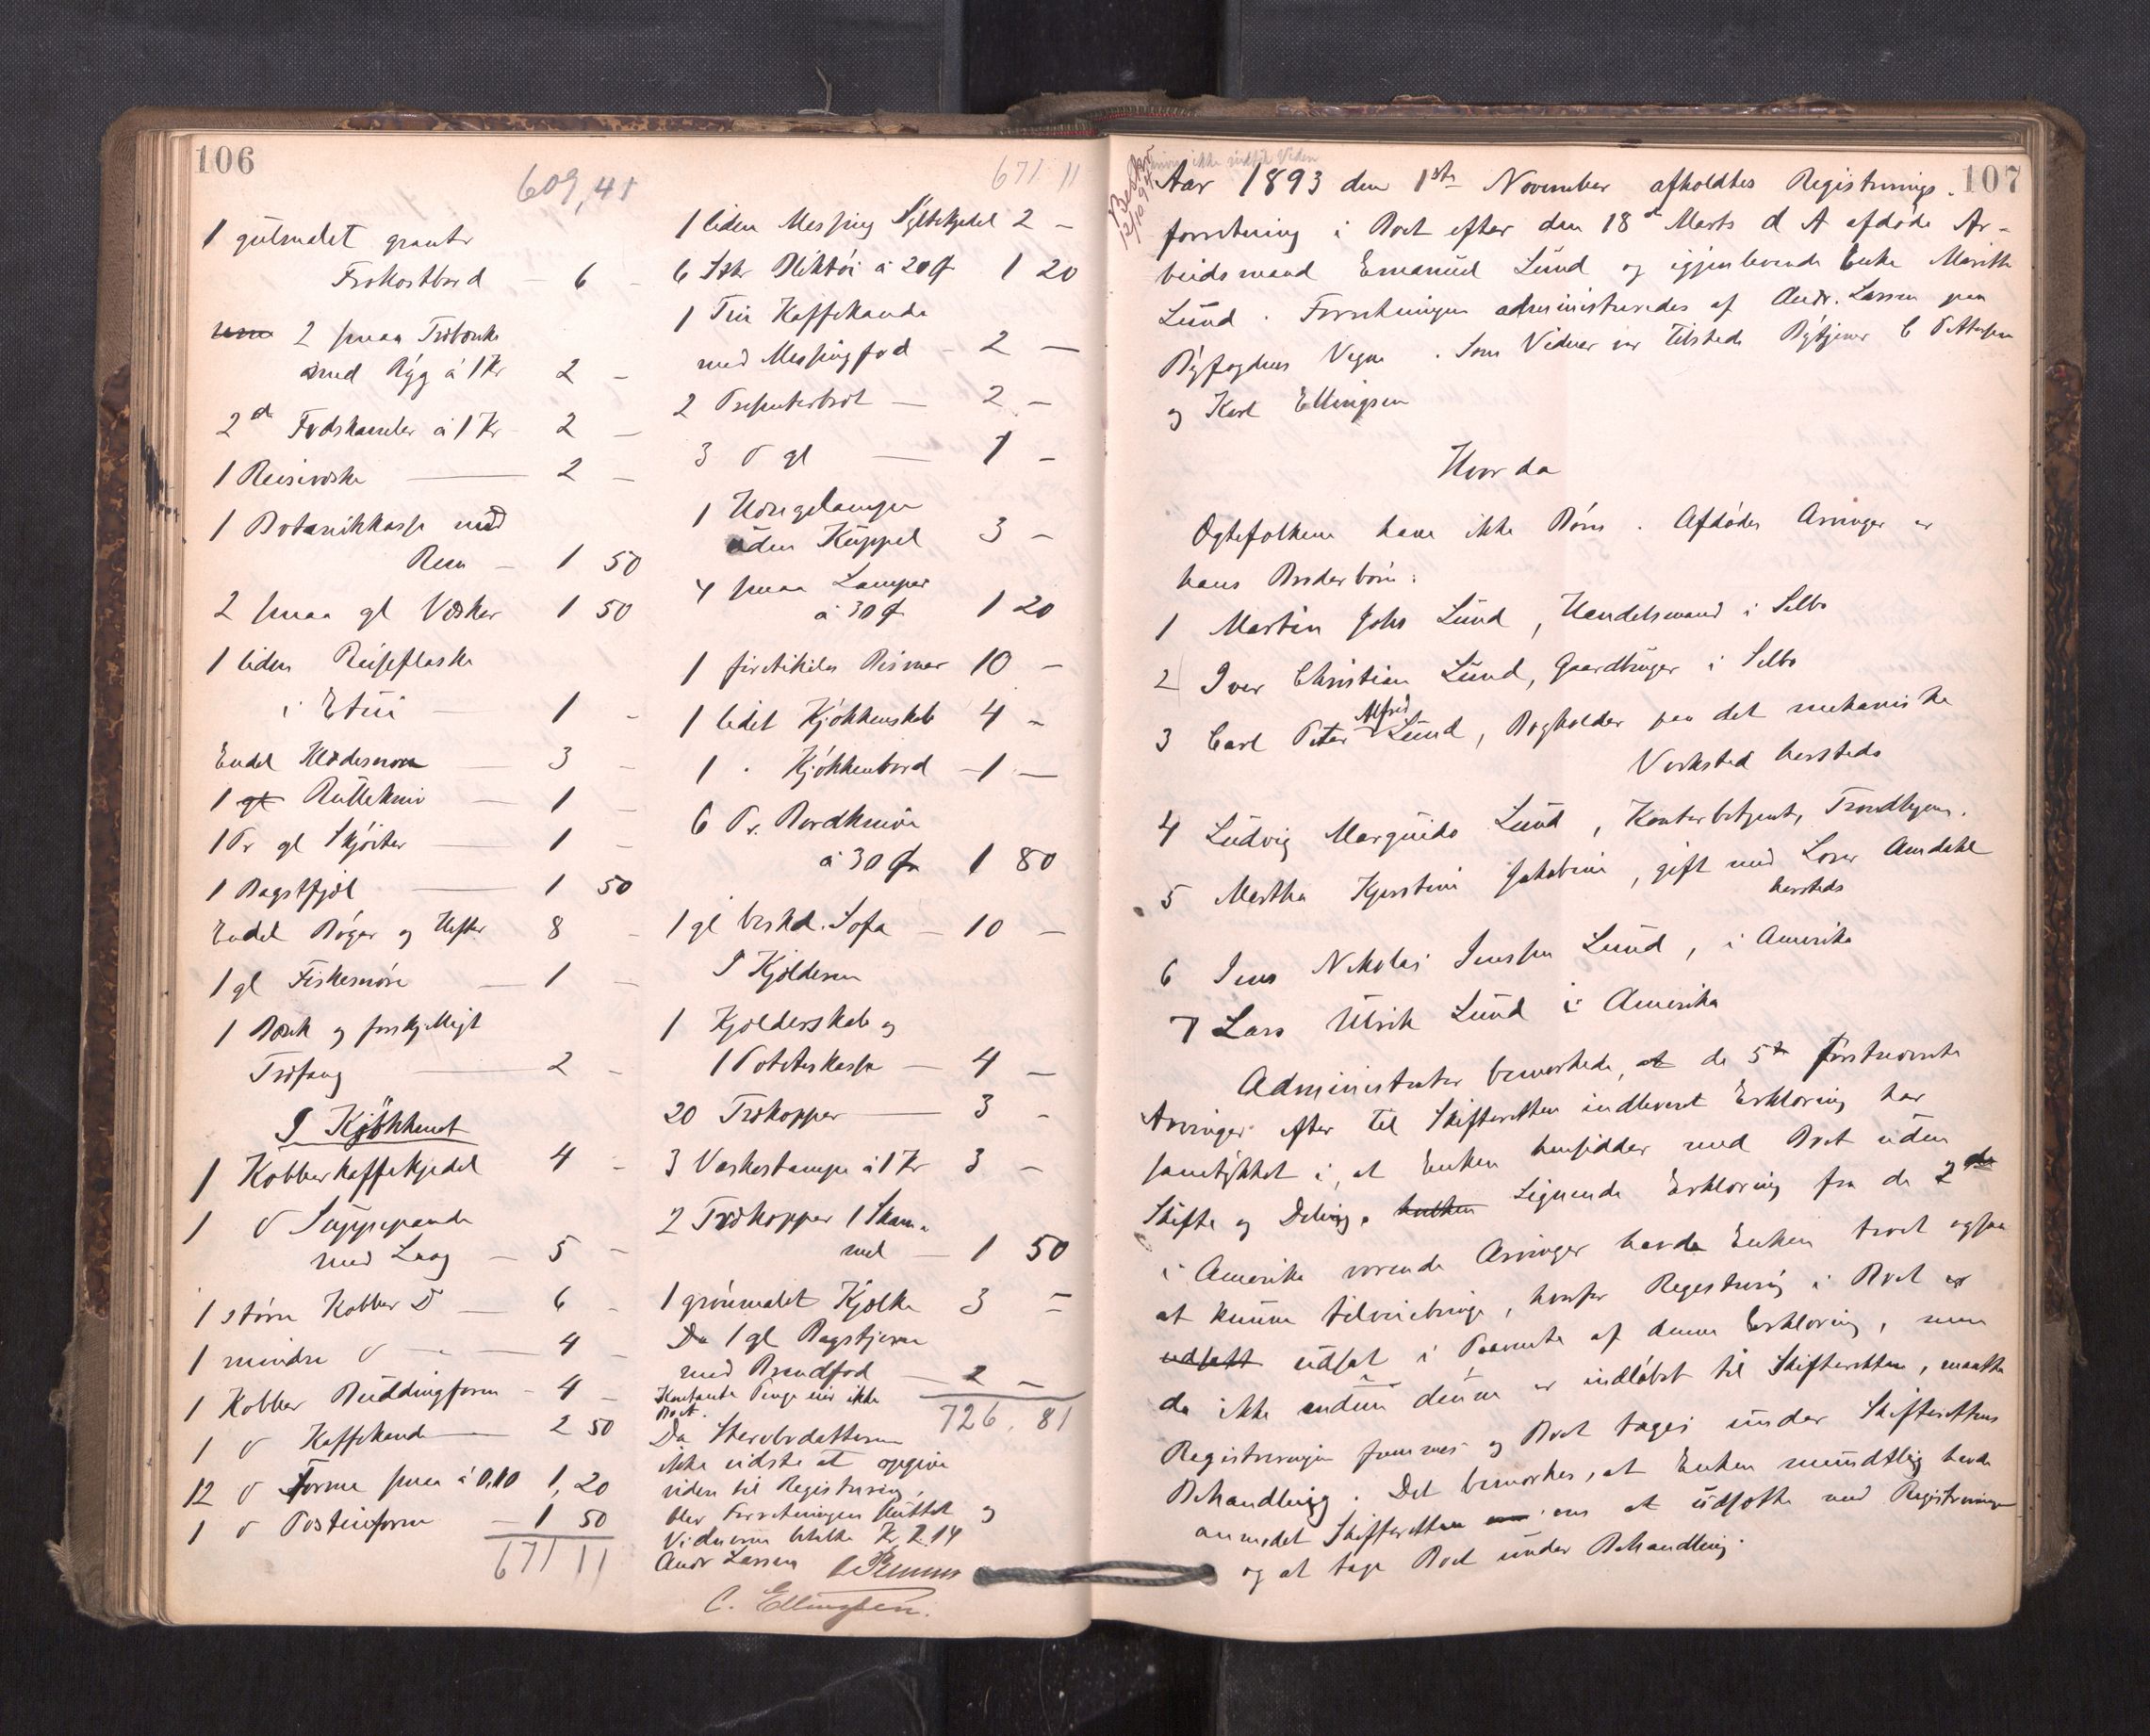 106
609,41
1 gulmalet granets
Frokostbord — 6 -
2 smaa Træbænke
med Ryg à 1 Kr 2 -
2de Fodskamler à 1 Kr 2 —
1 Reisevæske — 2 -
1 Botanikkasse med
Rem — 1 50
2 smaa gl Væsker 1 50
1 liden Reiseflaske
i Etui — 1 -
Endel Klædesnore — 3 -
1 gl Rullekniv — 1 -
1 Pr gl Skjøiter — 1 -
1 Bagstfjøl — 1 50
Endel Bøger og Hefter 8 -
1 gl Fiskesnøre — 1 -
1 Bænk og forskjelligt
Træfang — 2 -
I Kjøkkenet
1 Kobberkaffekjedel 4 -
1 d Suppepande
med Laag — 5 -
1 større Kobber D — 6 -
1 mindre d — 4 -
1 Kobber Buddingform - 4 -
1 d Kaffekande — 2 50
12 d Forme smaa à 0,10 1,20
1 d Posteiform — 1 50
671 11
671 11
1 liden Messing Syltekjedel 2 -
6 Stkr Bliktøi à 20 Ø 1 20
1 Tin Kaffekande
med Messingfod - 2 —
2 Presenterbræt — 2 -
3 d gl — 1 -
1 Hængelampe
uden Kuppel 3 -
4 smaa Lamper
à 30 Ø 1 20
1 Bismer 10 -
1 lidet Kjøkkenskab 4 -
1 " Kjøkkenbord - 1 —
6 Pr. Bordknive
à 30 Øre 1 80
1 gl beskd. Sofa — 10 —
I Kjælderen
1 Kjælderskab og
1 Poteteskasse — 4 —
20 Trækopper — 3 -
3 Vaskestampe à 1 Kr 3 -
2 Trækopper 1 Skam-
mel — 1 50
1 grønmalet Kjælke 3 =
Da 1 gl Bagstjerne
med Brændfod — 2 -
Kontante Penge eier ikke
Boet.
726.81
Da Stervbodatteren
ikke vidste at opgive
viden til Registrering,
blev Forretningen sluttet og
Vidnerne betalte Kr 2.14
Andr Larsen
C. Ellingsen.
107
Beskr
12/10 94
Aar 1893 den 1ste November afholdtes Registrerings-
forretning i Boet efter den 18de Marts d A afdøde Ar-
beidsmand Emanuel Lund og igjenlevende Enke Marith
Lund. Forretningen administreredes af Andr. Larsen paa
Byfogdens Vegne. Som Vidner var tilstede Bytjener C Pettersen
og Karl Ellingsen
Hvorda
Ægtefolkene have ikke Børn. Afdødes Arvinger er
hans Broderbørn:
1 Martin Johs Lund, Handelsmand i Selbo
2 Iver Christian Lund, Gaardbruger i Selbo
3 Carl Peter Alfred Lund, Bogholder paa det mekaniske
Værksted hersteds
4 Ludvig Marquido Lund, Kontorbetjent, Trondhjem.
5 Martha Kjerstine Jakobine, gift med Loser Amdahl
hersteds
6 Jens Nikolai Jenssen Lund, i Amerika
7 Lars Ulrik Lund i Amerika
Administrator bemærkede, at de 5te førstnævnte
Arvinger efter til Skifteretten indleveret Erklæring har
samtykket i, at Enken hensidder med Boet uden
Skifte og Deling. hvilken Lignende Erklæring fra de 2de
i Amerika værende Arvinger havde Enken troet ogsaa
at kunne tilveiebringe, hvorfor Registrering i Boet er
udsatt udsat i Paavente af denne Erklæring, men
da ikke endnu denne er indløbet til Skifteretten, maatte
Registreringen fremmes og Boet tages under Skifterettens
Behandling. Det bemærkes, at Enken mundtlig havde
anmodet Skifteretten om at udsætte med Registreringen
og at tage Boet under Behandling.